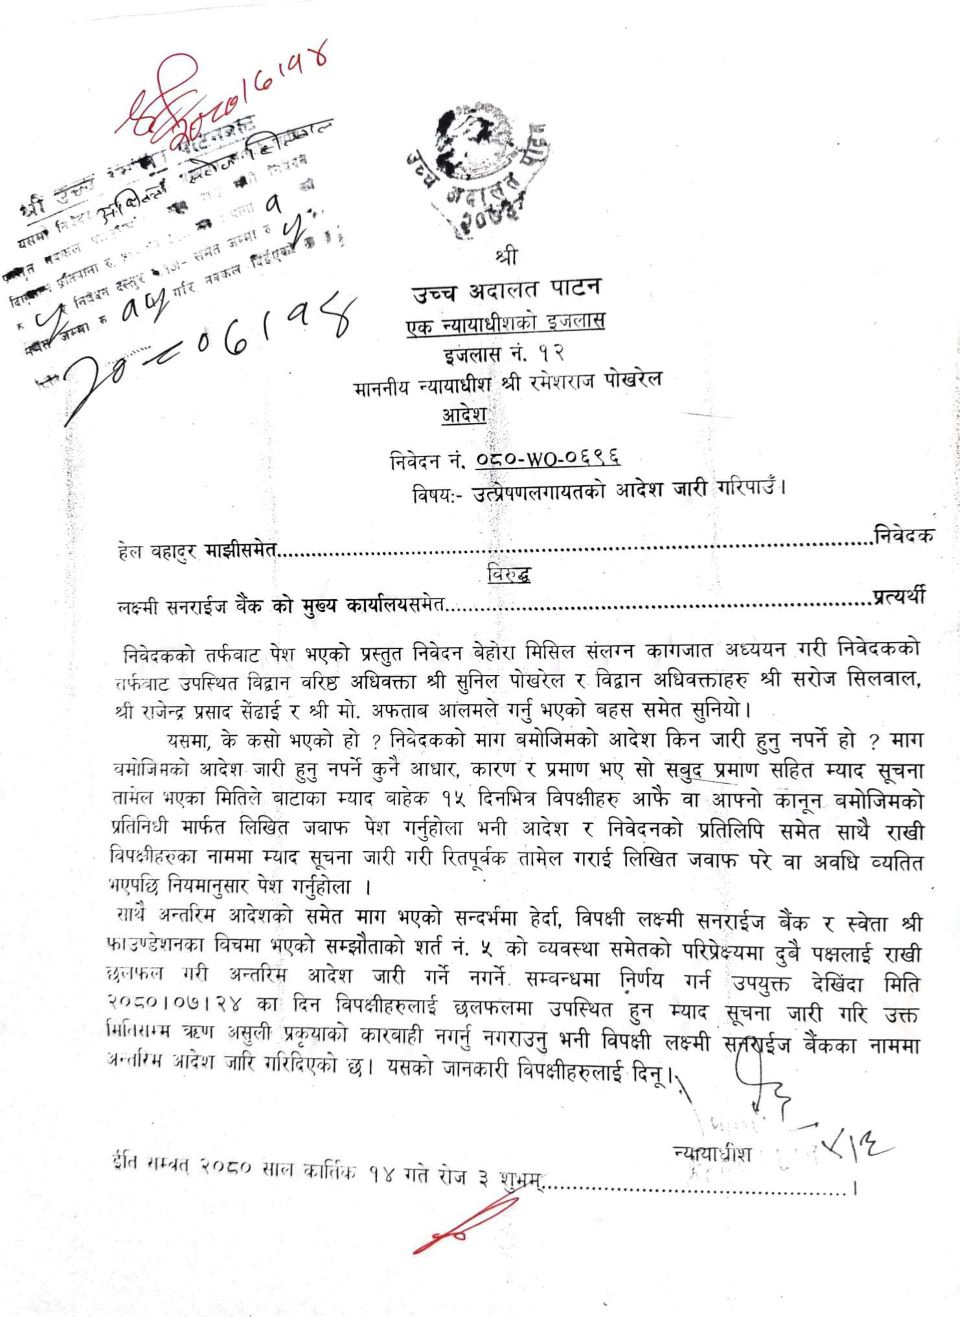 २०८०।६।१४
श्री उच्च
यसमा
प्रतिपाना रु.
निवेदन दस्तुर समेत जम्मा रु
जम्मा रु १५ गरि नक्कल दिईएको
उच्च अदालत पाटन
श्री
उच्च अदालत पाटन
एक न्यायाधीशको इजलास
इजलास नं. १२
माननीय न्यायाधीश श्री रमेशराज पोखरेल
आदेश
निवेदन नं. ०८०-WO-०६९६
विषय:- उत्प्रेषणलगायतको आदेश जारी गरिपाउँ।
हेल वहादुर माझीसमेत...........................................................निवेदक
विरुद्ध
लक्ष्मी सनराईज वैंक को मुख्य कार्यालयसमेत...........................................................प्रत्यर्थी
निवेदकको तर्फवाट पेश भएको प्रस्तुत निवेदन बेहोरा मिसिल संलग्न कागजात अध्ययन गरी निवेदकको
तर्फवाट उपस्थित विद्वान वरिष्ठ अधिवक्ता श्री सुनिल पोखरेल र विद्वान अधिवक्ताहरु श्री सरोज सिलवाल,
श्री राजेन्द्र प्रसाद सेंढाई र श्री मो. अफताब आलमले गर्नु भएको बहस समेत सुनियो।
यसमा, के कसो भएको हो ? निवेदकको माग बमोजिमको आदेश किन जारी हुनु नपर्ने हो ? माग
वमोजिमको आदेश जारी हुनु नपर्ने कुनै आधार, कारण र प्रमाण भए सो सबुद प्रमाण सहित म्याद सूचना
तामेल भएका मितिले बाटाका म्याद बाहेक १५ दिनभित्र विपक्षीहरु आफै वा आफ्नो कानून बमोजिमको
प्रतिनिधी मार्फत लिखित जवाफ पेश गर्नुहोला भनी आदेश र निवेदनको प्रतिलिपि समेत साथै राखी
विपक्षीहरुका नाममा म्याद सूचना जारी गरी रितपूर्वक तामेल गराई लिखित जवाफ परे वा अवधि व्यतित
भएपछि नियमानुसार पेश गर्नुहोला ।
साथै अन्तरिम आदेशको समेत माग भएको सन्दर्भमा हेर्दा, विपक्षी लक्ष्मी सनराईज बैंक र स्वेता श्री
फाउण्डेशनका विचमा भएको सम्झौताको शर्त नं. ५ को व्यवस्था समेतको परिप्रेक्ष्यमा दुबै पक्षलाई राखी
छलफल गरी अन्तरिम आदेश जारी गर्ने नगर्ने सम्वन्धमा निर्णय गर्न उपयुक्त देखिंदा मिति
२०८०।०७।२४ का दिन विपक्षीहरुलाई छलफलमा उपस्थित हुन म्याद सूचना जारी गरि उक्त
मितिसम्म ऋण असुली प्रकृयाको कारवाही नगर्नु नगराउनु भनी विपक्षी लक्ष्मी सनराईज बैंकका नाममा
अन्तरिम आदेश जारि गरिदिएको छ। यसको जानकारी विपक्षीहरुलाई दिनू।
न्यायाधीश
ईति सम्वत् २०८० साल कार्तिक १४ गते रोज ३ शुभम्...........................................।